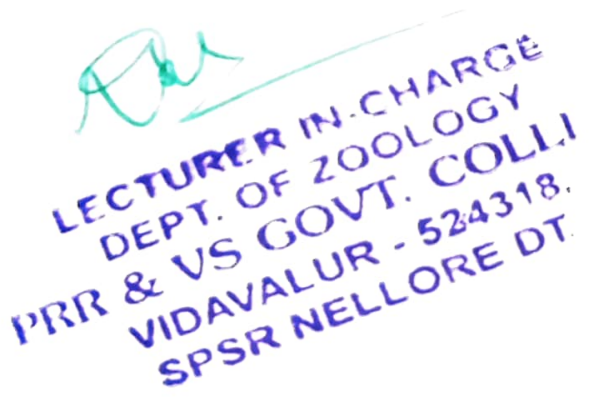 LECTURER IN-CHARGE
DEPT. OF ZOOLOGY
PRR & VS GOVT. COLL
VIDAVALUR - 524318.
SPSR NELLORE DT.